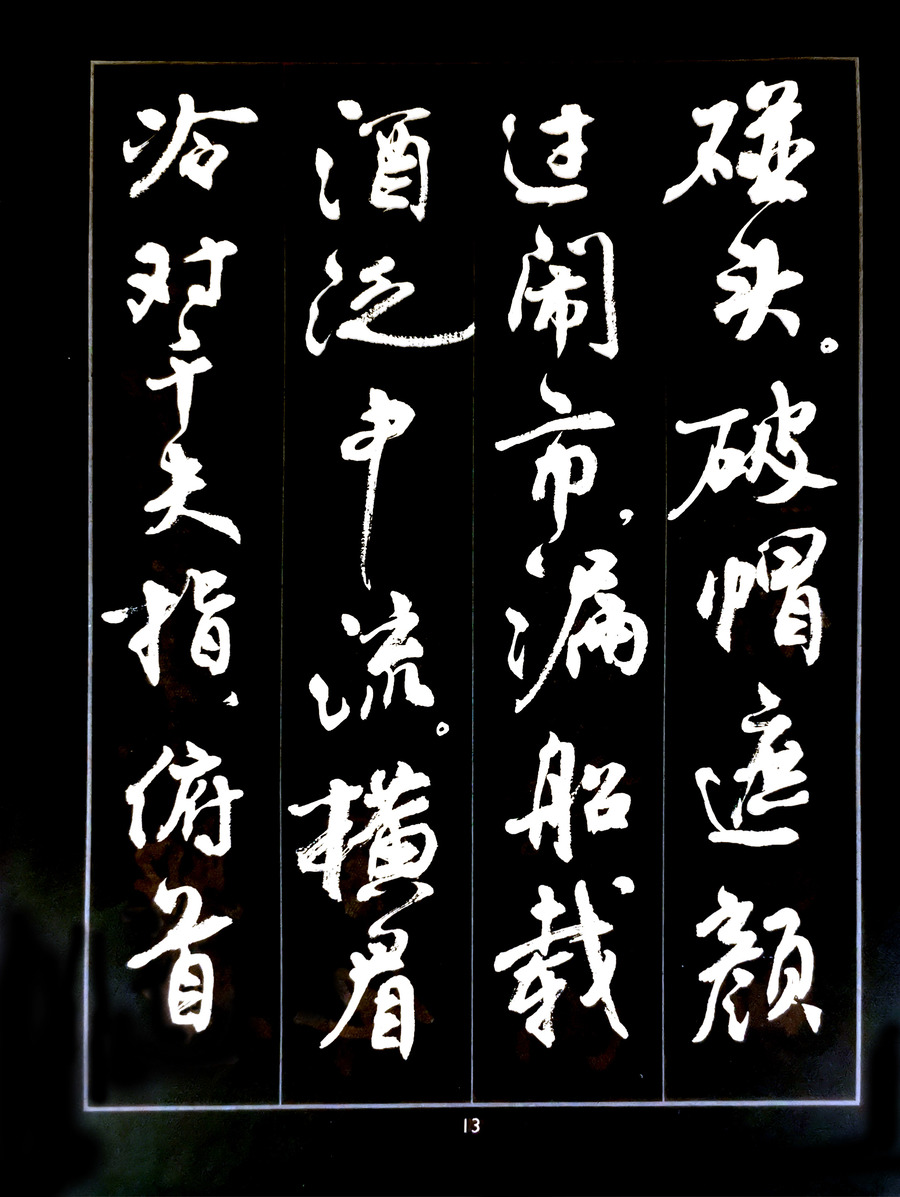 碰头。破帽遮颜
过闹市，漏船载
酒泛中流。横看
冷对千夫指，俯首
13